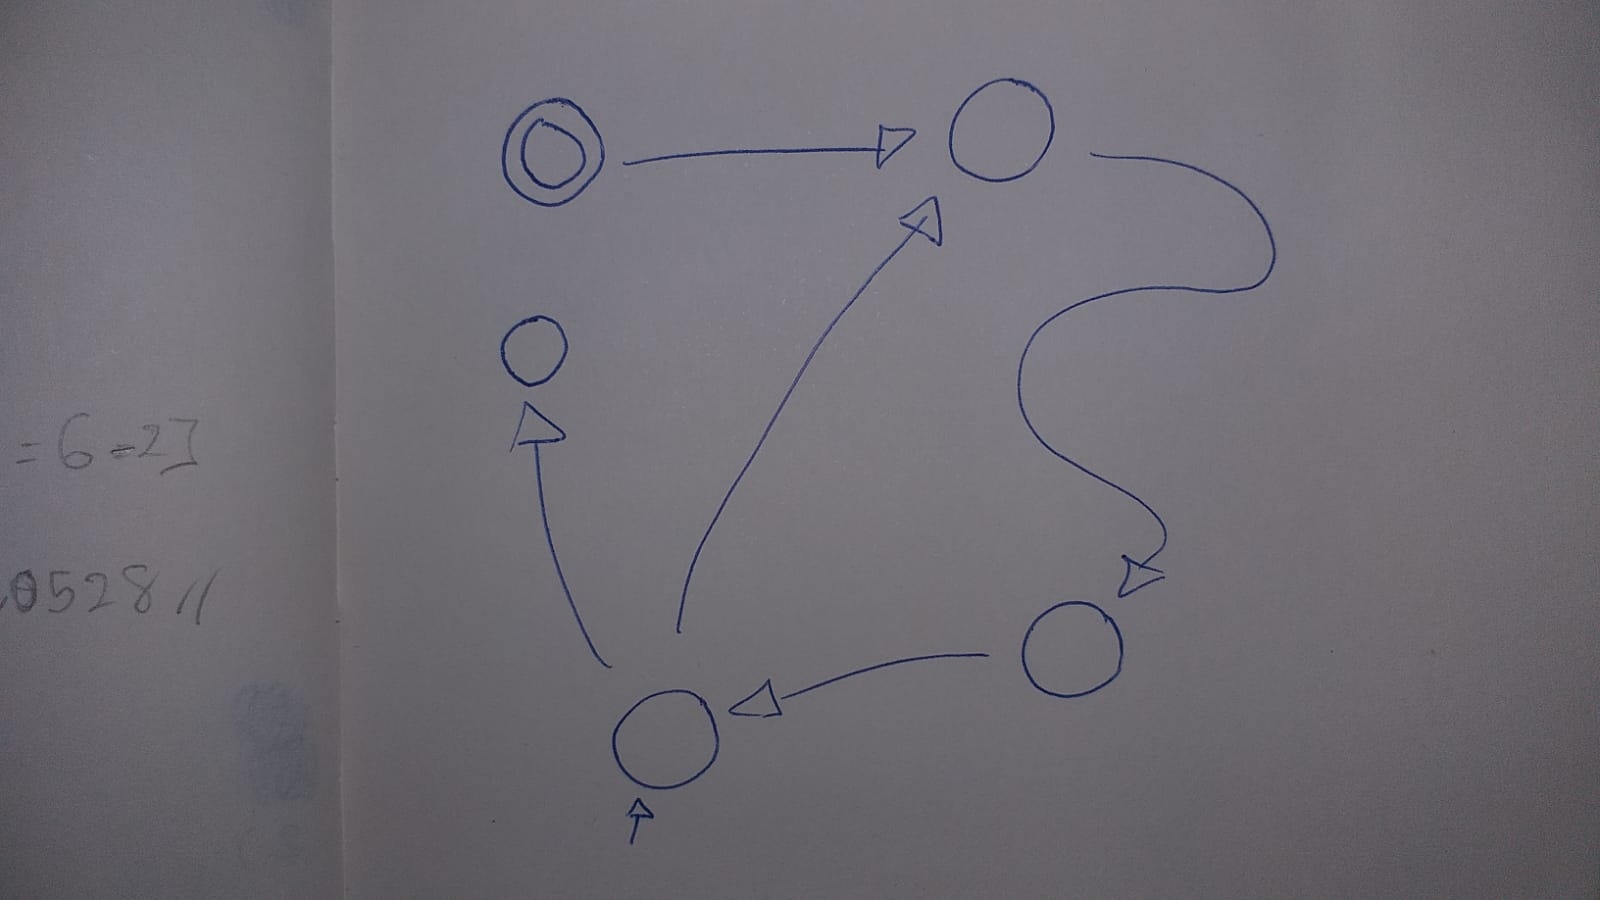 =6=2]
0528//